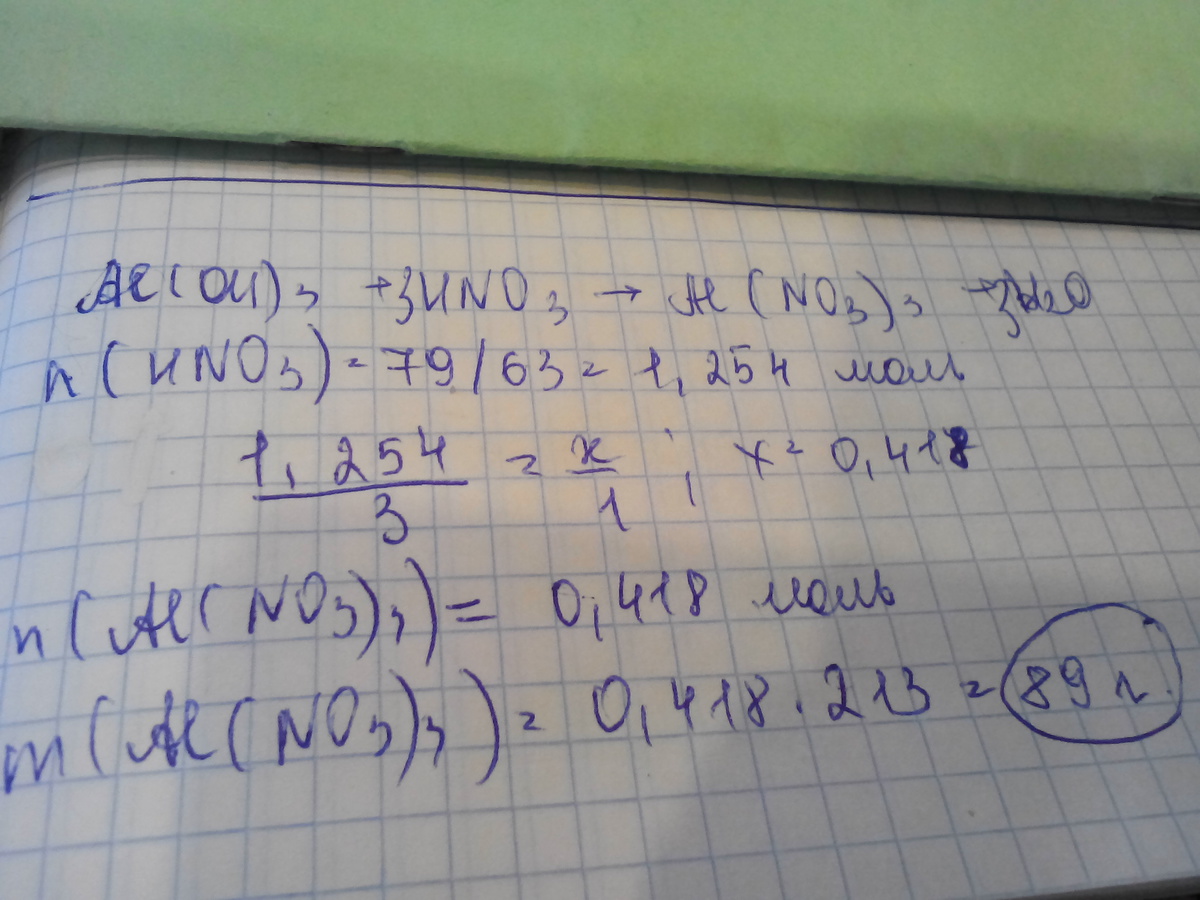 Al(OH)3 + 3HNO3 → Al(NO3)3 + 3H2O
n(HNO3) = 79/63 = 1,254 моль
1,254/3 = x/1 ; x = 0,418
n(Al(NO3)3) = 0,418 моль
m(Al(NO3)3) = 0,418 · 213 = 89 г.